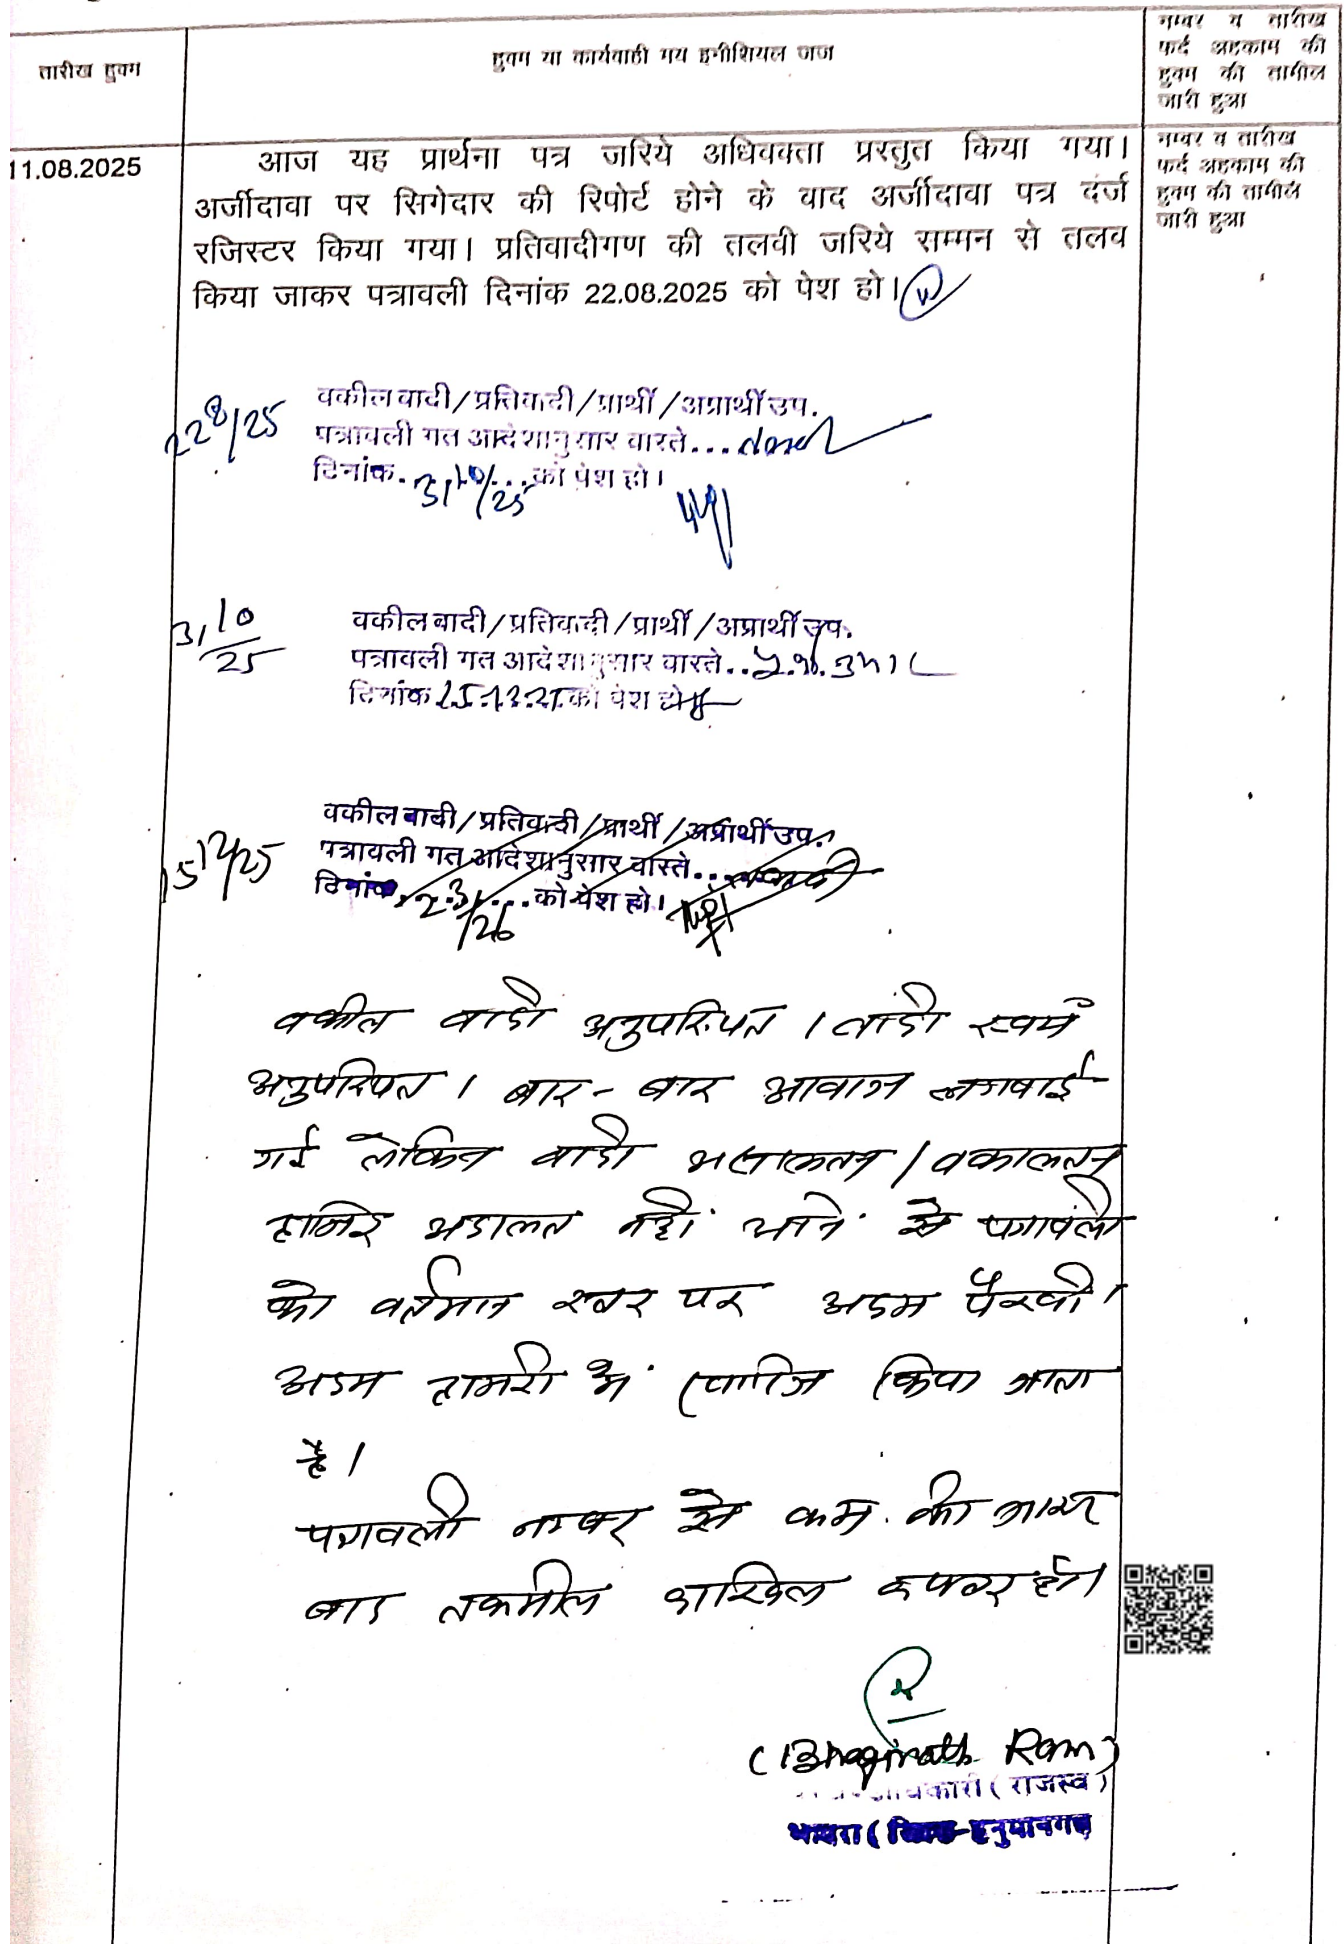 तारीख हुक्म
हुक्म या कार्यवाही मय इनीशियल जज
नम्बर व तारीख
फर्द अहकाम की
हुक्म की तामील
जारी हुआ
नम्बर व तारीख
फर्द अहकाम की
हुक्म की तामील
जारी हुआ
11.08.2025
आज यह प्रार्थना पत्र जरिये अधिवक्ता प्रस्तुत किया गया।
अर्जीदावा पर सिगेदार की रिपोर्ट होने के बाद अर्जीदावा पत्र दर्ज
रजिस्टर किया गया। प्रतिवादीगण की तलवी जरिये सम्मन से तलव
किया जाकर पत्रावली दिनांक 22.08.2025 को पेश हो।
22 8/25
वकील वादी/प्रतिवादी/प्रार्थी/अप्रार्थी उप.
पत्रावली गत आदेशानुसार वास्ते... तलबी
दिनांक. 31/10/25 को पेश हो।
31 10/25
वकील वादी/प्रतिवादी/प्रार्थी/अप्रार्थी उप.
पत्रावली गत आदेशानुसार वास्ते..
दिनांक को पेश हो
15/12/25
वकील वादी/प्रतिवादी/प्रार्थी/अप्रार्थी उप.
पत्रावली गत आदेशानुसार वास्ते...
दिनांक. 2.3/26 को पेश हो।
वकील वादी अनुपस्थित। वादी स्वयं
अनुपस्थित। बार-बार आवाज लगवाई
गई लेकिन वादी असालतन/वकालतन
हाजिर अदालत नहीं आने से पत्रावली
को वर्तमान स्तर पर अदम पैरवी।
अदम हाजरी में खारिज किया जाता
है।
पत्रावली नम्बर से कम की जाकर
बाद तकमील दाखिल दफ्तर हो।
(Bhagirath Ram)
(राजस्व)
भादरा (जिला-हनुमानगढ़